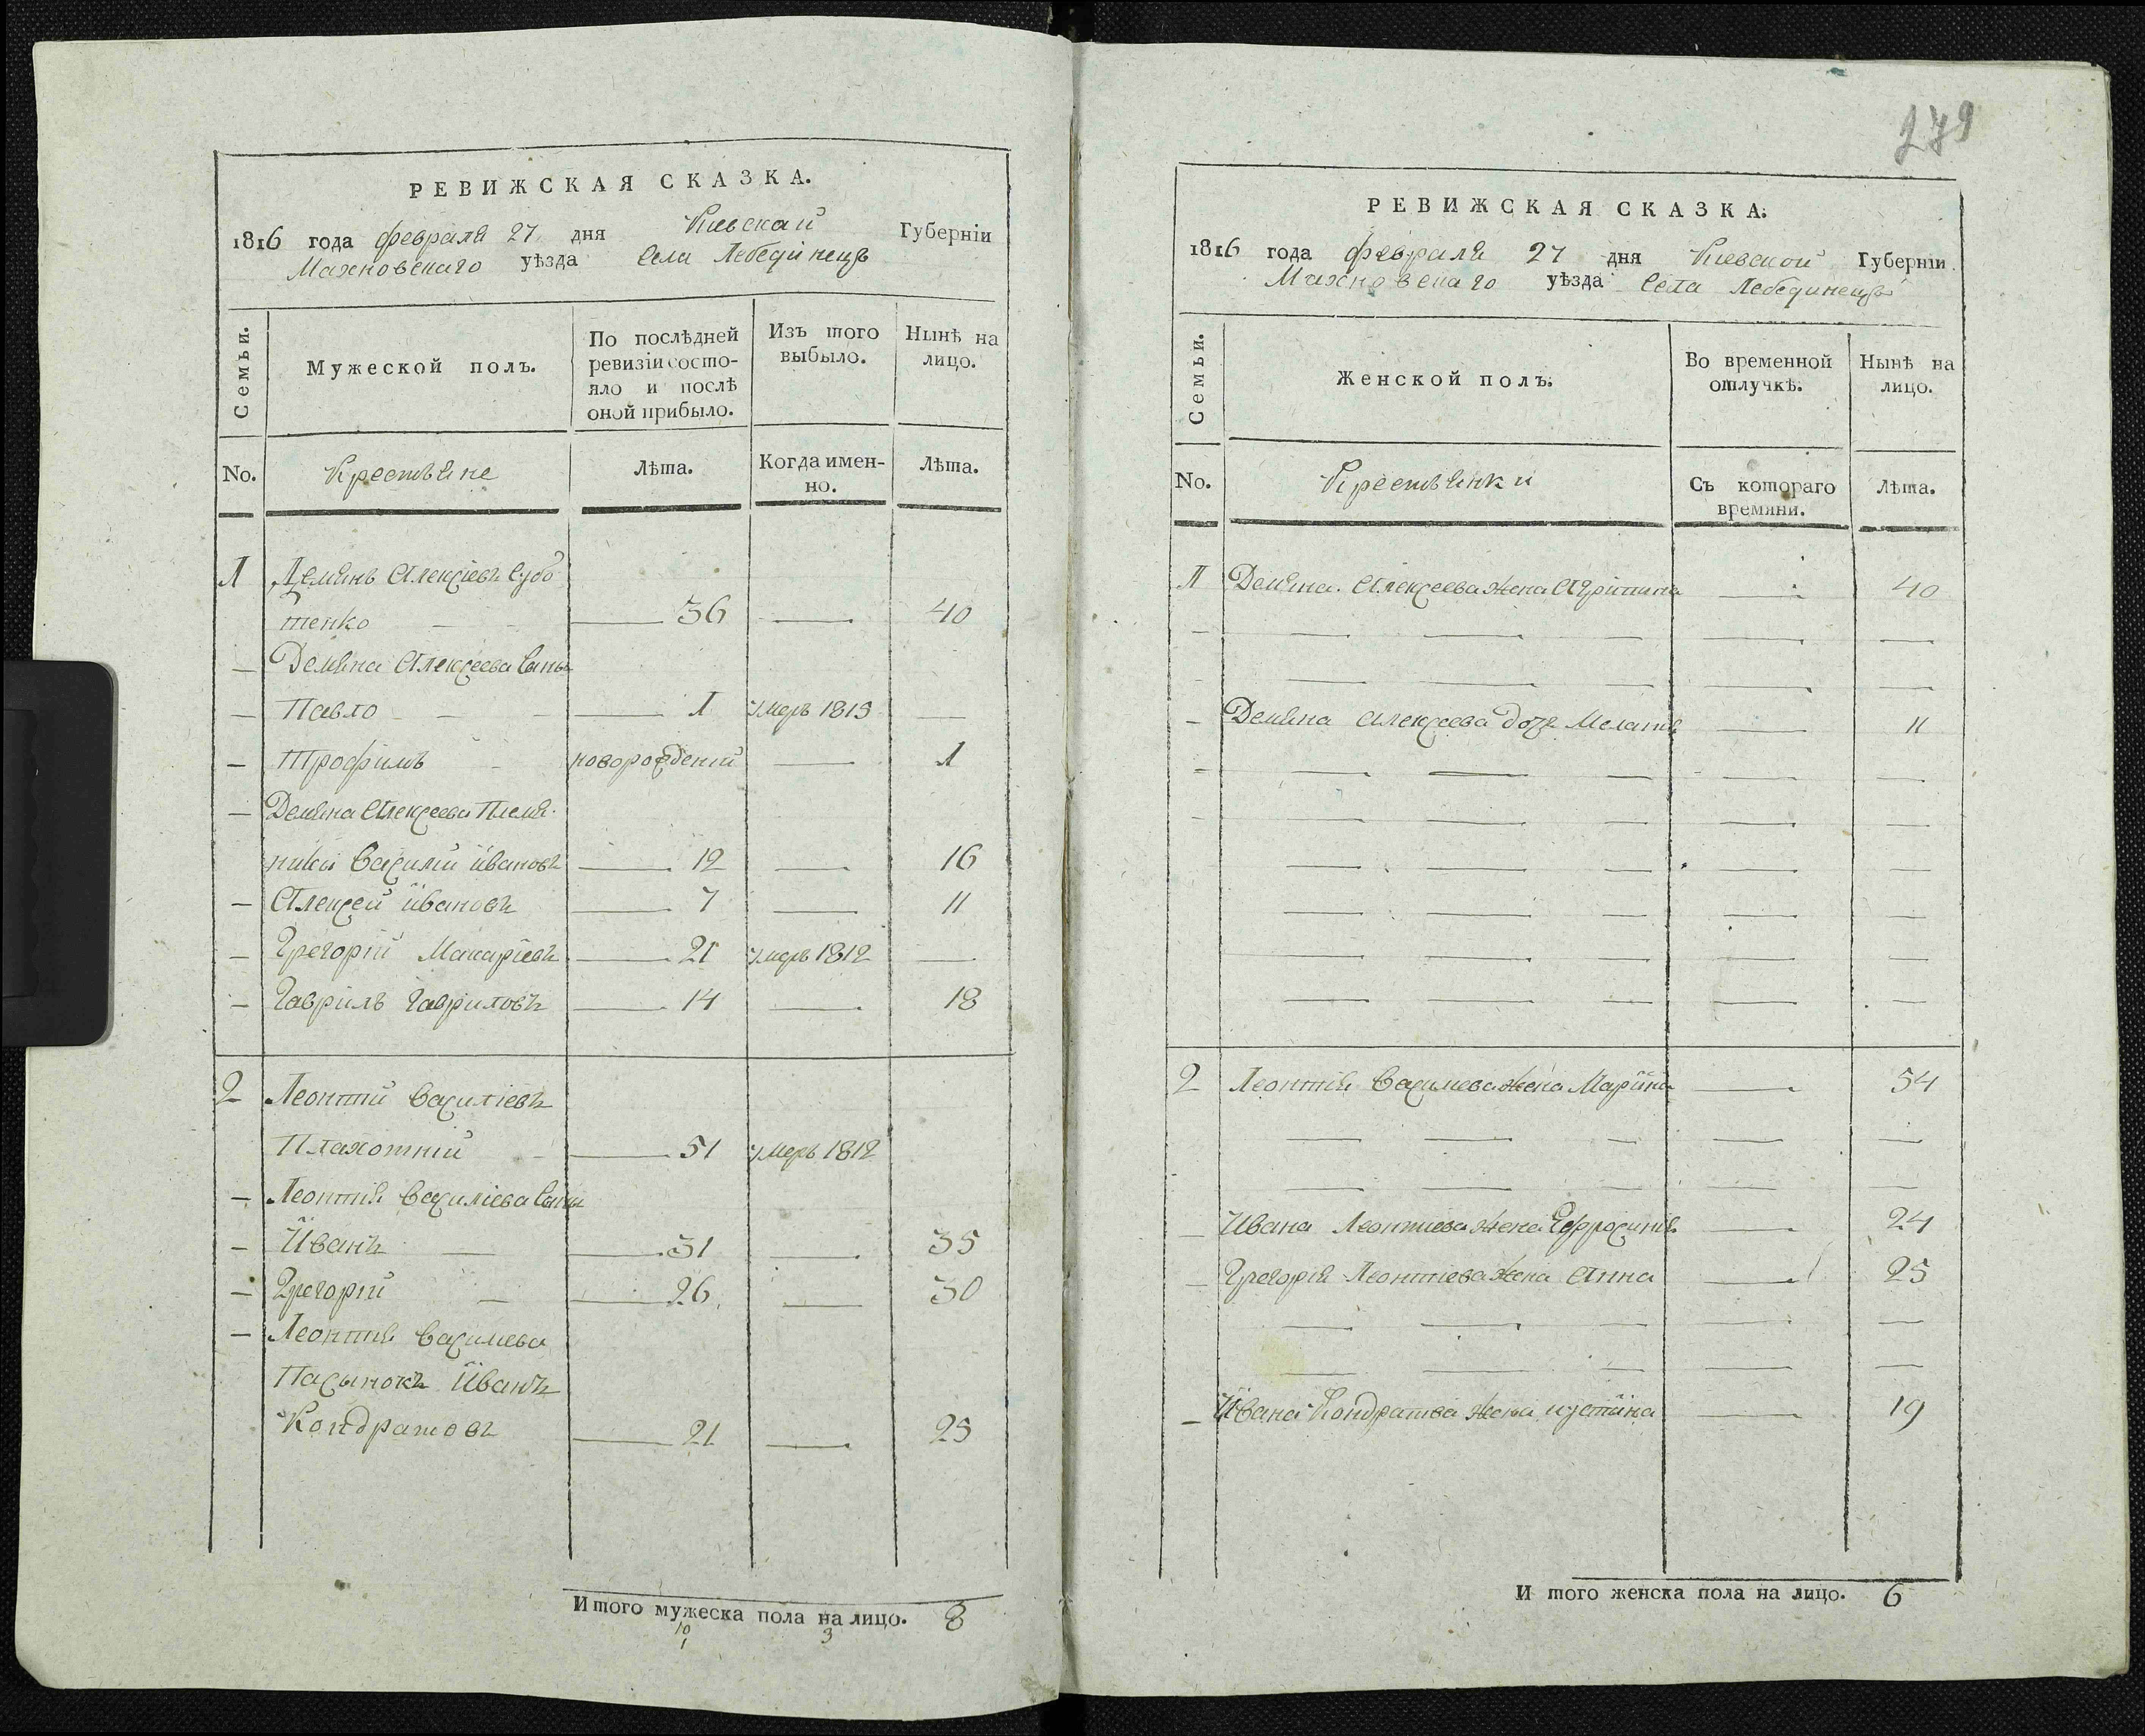 279
РЕВИЖСКАЯ СКАЗКА.
1816 года февраля 27 дня Киевской Губерніи
Махновскаго уѣзда села Лебединецъ
Семьи.
Мужеской полъ.
По послѣдней ревизіи состояло и послѣ оной прибыло.
Изъ того выбыло.
Нынѣ на лицо.
No.
Крестьяне
Лѣта.
Когда именно.
Лѣта.
1 Демянъ Алексіевъ Субо
тенко — 36 — 40
— Демяна Алексеева Сыны
— Павло — 1 умеръ 1815 —
— Трофимъ новорозденій — 1
— Демяна Алексеева Племя
ники Василій Ивановъ — 12 — 16
— Алексей Ивановъ — 7 — 11
— Грегорій Макаріевъ — 21 умеръ 1812 —
— Гаврилъ Гавриловъ — 14 — 18
2 Леонтій Василіевъ
Плахотній — 51 умеръ 1812
— Леонтія Василіева Сыны
— Иванъ — 31 — 35
— Грегорій — 26 — 30
— Леонтія Василиева
Пасынокъ Иванъ
Кондратовъ — 21 — 25
Итого мужеска пола на лицо. 8
10 3
1
РЕВИЖСКАЯ СКАЗКА.
1816 года февраля 27 дня Киевской Губерніи.
Махновскаго уѣзда Села Лебединецъ
Семьи.
Женской полъ.
Во временной отлучкѣ.
Нынѣ на лицо.
No.
Крестянки
Съ котораго времяни.
Лѣта.
1 Демяна Алексеева жена Агрипина — 40
— Демяна Алексеева дочъ Меланія — 11
2 Леонтія Василиева жена Марина — 54
— Ивана Леонтиева жена Ефросинія — 24
— Грегорія Леонтіева жена Анна — 25
— Ивана Кондратова жена Иустина — 19
И того женска пола на лицо. 6